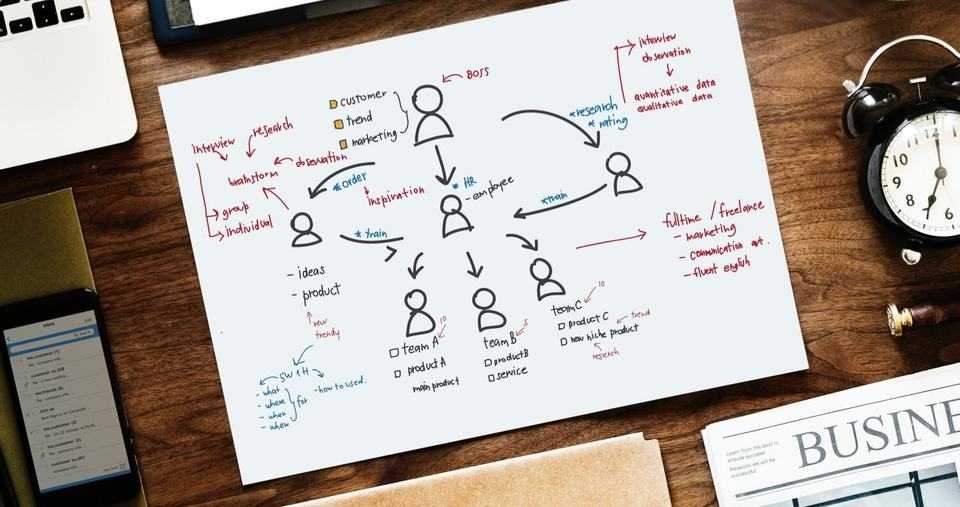 BOSS
customer
trend
marketing
interview
observation
quantitative data
qualitative data
*research
* rating
interview
research
brainstorm
observation
group
individual
*order
inspiration
* HR
- employee
*train
* train
- ideas
- product
new
trendy
5W1H
- what
- where
- when
for
- how to used.
fulltime / freelance
- marketing
- communication art.
- fluent english
10
team A
product A
main product
5
team B
product B
service
10
team C
product C
new niche product
trend
research
10
11
9
8
7
6
5
BUSINE